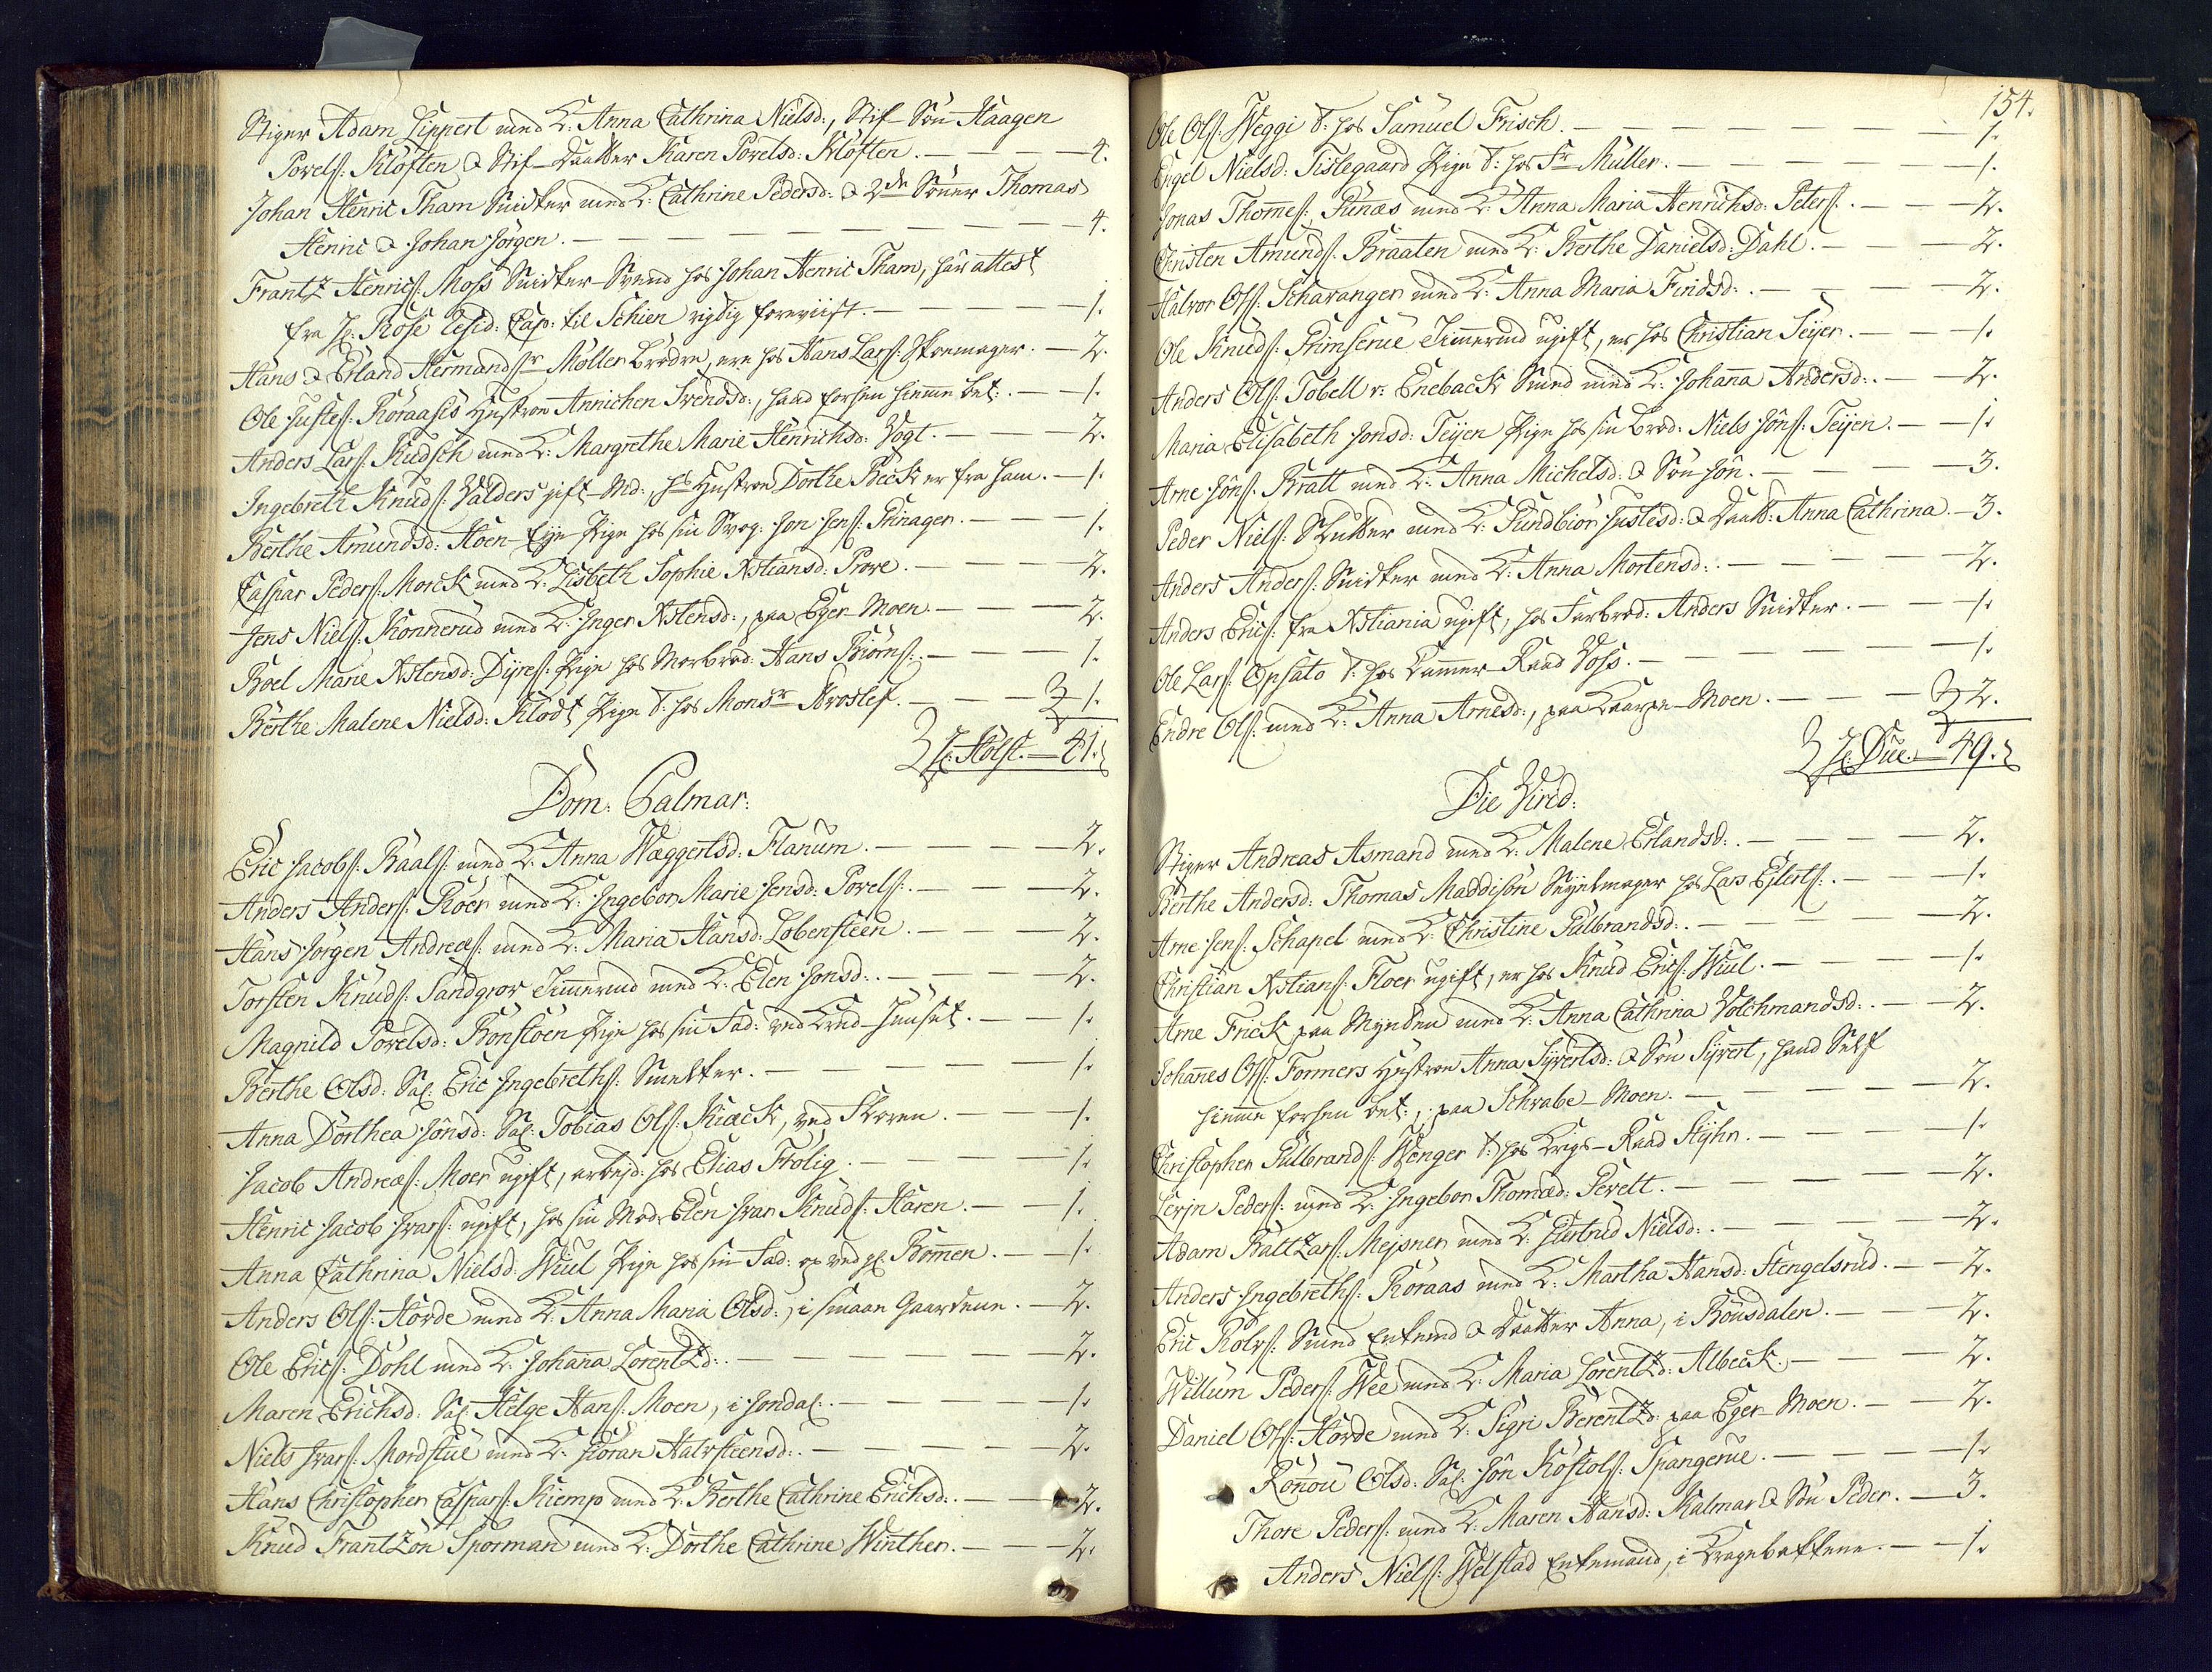 Stiger Adam Lippert med K: Anna Cathrina Nielsd:, Stif-Søn Haagen
Povels: Klöften & Stif-Daatter Karen Povelsd: Klöften. — 4.
Johan Henric Tham Snidker med K: Cathrine Pedersd: & 2de Sönner Thomas
Henric & Johan Jörgen. — 4.
Frantz Henrics: Moss Snidker Svend hos Johan Henric Tham, har attest
fra Hr: Rose Resid: Cap: til Schien rigtig foreviist. — 1.
Hans & Erland Hermands Møller Brødre, ere hos Hans Lars: Skoemager. — 2.
Ole Justes: Röraasis Hustroe Annichen Svendsd:, haand forhen hiemme bet: — 1.
Anders Lars: Kudsch med K: Margrethe Marie Henrichsd: Vogt. — 2.
Ingebreth Knuds: Valders gift-Md:, hs Hustroe Dorthe Beck er fra ham. — 1.
Berthe Amundsd: Hoen-Eje Pige hos sin Svog: Jon Jens: Prinager. — 1.
Caspar Peders: Morck med K: Lisbeth Sophie Xstiansd: Prove. — 2.
Jens Niels: Konnerud med K: Inger Xstensd:, paa Eger-Moen — 2.
Boel Marie Xstensd: Dyres: Pige hos Morbrod: Hans Biörns: — 1.
Berthe Malene Nielsd: Klodt Pige t: hos Monsr Aroslef. — 1.
Hr: Holst. — 41.
Dom: Palmar:
Eric Jacobs: Baals: med K: Anna Weggertsd: Flanum. — 2.
Anders Anders: Roer med K: Ingebor Marie Jensd: Povels: — 2.
Hans Jörgen Andreæs: med K: Maria Hansd: Lobensteen. — 2.
Torsten Knuds: Sandgrov Timmermd med K: Elen Jonsd: — 2.
Magnild Povelsd: Bonstöen Pige hos sin Fad: ved Krud-Huuset. — 1.
Berthe Olsd: Sal: Eric Ingebreths: Smelter. — 1.
Anna Dorthea Jönsd: Sal: Tobias Ols: Kiæck, ved Skoven. — 1.
Jacob Andreæs: Moer ugift, arbejd: hos Elias Frölig. — 1.
Henric Jacob Ivars: ugift, hos sin Mod: Elen Ivar Knuds: Haren. — 1.
Anna Cathrina Nielsd: Wiul Pige hos sin Fad: op ved gl: Bommen. — 1.
Anders Ols: Horde med K: Anna Maria Olsd:, i smaae Gaardene. — 2.
Ole Erics: Dohl med K: Johanna Lorentzd: — 2.
Maren Erichsd: Sal: Helge Hans: Moen, i Jondal: — 1.
Niels Ivars: Mordstue med K: Joran Halvsteensd: — 2.
Hans Christopher Caspars: Kiemp med K: Berthe Cathrine Erichsd: — 2.
Knud Frantzön Sporman med K: Dorthe Cathrine Winther. — 2.
154.
Ole Ols: Weggi t: hos Samuel Frisch. — 1.
Engel Nielsd: Tislegaard Pige t: hos Sr Müller. — 1.
Jonas Thomes: Funæs med K: Anna Maria Henrichsd: Peters: — 2.
Christen Amunds: Braaten med K: Berthe Danielsd: Dahl. — 2.
Halvor Ols: Scharanger med K: Anna Maria Findsd: — 2.
Ole Knuds: Grimserue Timmermd ugift, er hos Christian Teijer. — 1.
Anders Ols: Tobell v: Eneback Smed med K: Johanna Andersd: — 2.
Maria Elisabeth Jonsd: Teijen Pige hos sin Brod: Niels Jöns: Teijen. — 1.
Arne Jöns: Bratt med K: Anna Michelsd: & Søn Jön. — 3.
Peder Niels: Skutter med K: Gundbiör Justesd: & Daatt: Anna Cathrina. — 3.
Anders Anders: Snidker med K: Anna Mortensd: — 2.
Anders Erics: fra Xstiania ugift, hos Farbrod: Anders Snidker. — 1.
Ole Lars: Opsato t: hos Kammer-Raad Voss. — 1.
Endre Ols: med K: Anna Arnesd:, paa Kaarpe-Moen. — 2.
Hr: Due. — 49.
Die Virid:
Stiger Andreas Asmand med K: Malene Erlandsd: — 2.
Berthe Andersd: Thomas Maddison Seigelmager hos Lars Ejlerts: — 1.
Arne Jens: Schapel med K: Christine Gulbrandsd: — 2.
Christian Xstians: Floer ugift, er hos Knud Erics: Wiul. — 1.
Arne Frick paa Mynten med K: Anna Cathrina Volchmandsd: — 2.
Johanes Ols: Formers Hustroe Anna Syvertsd: & Søn Syvert, hand Self
hiemme forhen bet:, paa Schrabe-Moen. — 2.
Christopher Gulbrands: Wenger t: hos Krigs-Raad Styhr. — 1.
Lerjn Peders: med K: Ingebor Thomæd: Pevelt. — 2.
Adam Baltzars: Mejsner med K: Giertrud Nielsd: — 2.
Anders Ingebreths: Röraas med K: Martha Hansd: Stengelsrud. — 2.
Eric Rolvs: Smed Enkemd & Daatter Anna, i Rousdalen. — 2.
Willum Peders: Wee med K: Maria Lorentzd: Albeck. — 2.
Daniel Ols: Horde med K: Sigri Berentzd: paa Eger-Moen. — 2.
Ronou Olsd: Sal: Jön Kostols: Spangerue. — 1.
Thore Peders: med K: Maren Hansd: Kalmar & Søn Peder. — 3.
Anders Niels: Welstad Enkemand, i Kragebakkene. — 1.